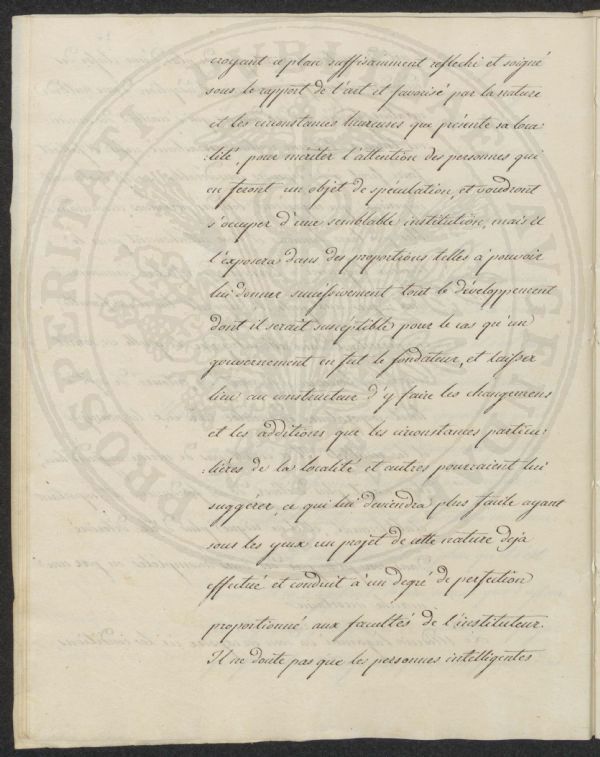 croyant ce plan suffisamment reflechi et soigné
sous le rapport de l'art et favorisé par la nature
et les circonstances heureuses que présente sa loca
:lité, pour mériter l'attention des personnes qui
en feront un objet de spéculation, et voudront
s'occuper d'une semblable institution, mais il
l'exposera dans des proportions telles à pouvoir
lui donner successivement tout le développement
dont il serait susceptible pour le cas qu'un
gouvernement en fut le fondateur, et laisser
lieu au constructeur d'y faire les changemens
et les additions que les circonstances particu:
:lières de la localité et autres pourraient lui
suggérer, ce qui lui deviendra plus facile ayant
sous les yeux un projet de cette nature deja
effectué et conduit à un degré de perfection
proportionné aux facultés de l'instituteur.
Il ne doute pas que les personnes intelligentes
PROSPERITATI PUBLICAE